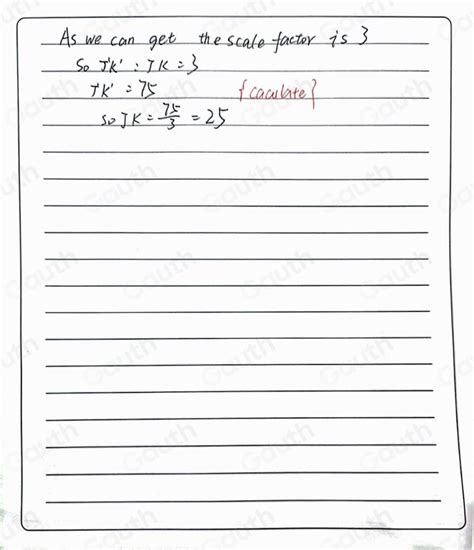 As we can get the scale factor is 3
So J'K' : JK = 3
J'K' = 75 {caculate}
so JK = 75/3 = 25
Gauth